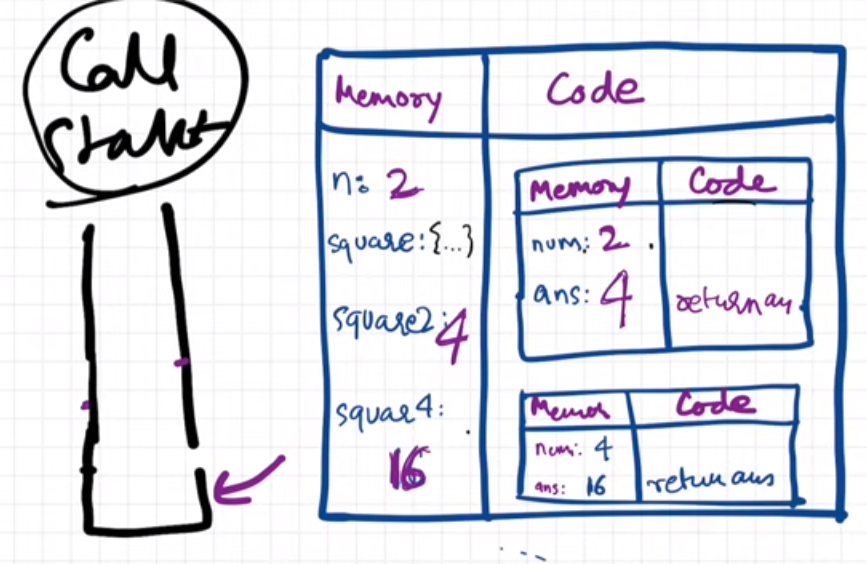 Call
Stack
Memory
Code
n: 2
square: {...}
square2: 4
squar4:
16
Memory
Code
num: 2
ans: 4
return an
Memor
Code
num: 4
ans: 16
return ans